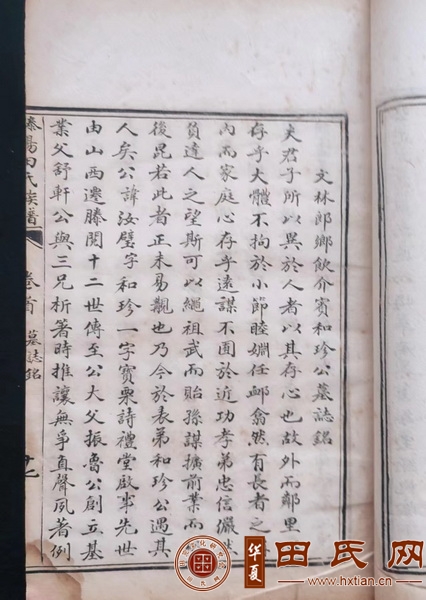 文林郎鄉飲介賓和珍公墓誌銘
夫君子所以異於人者以其存心也故外而鄰里
存乎大體不拘於小節睦婣任卹翕然有長者之
內而家庭心存乎遠謀不囿於近功孝弟忠信儼然
負達人之望斯可以繩祖武而貽孫謀擴前業而
後昆若此者正未易覯也乃今於表弟和珍公遇其
人矣公諱汝璧字和珍一字寶栗詩禮堂啟半先世
由山西遷滕閱十二世傳至公大父振魯公創立基
業父舒軒公與三兄析箸時推讓無爭直聲夙著例
滕陽田氏族譜
卷首
墓誌銘
十七
华夏
田氏网
www.hxtian.cn